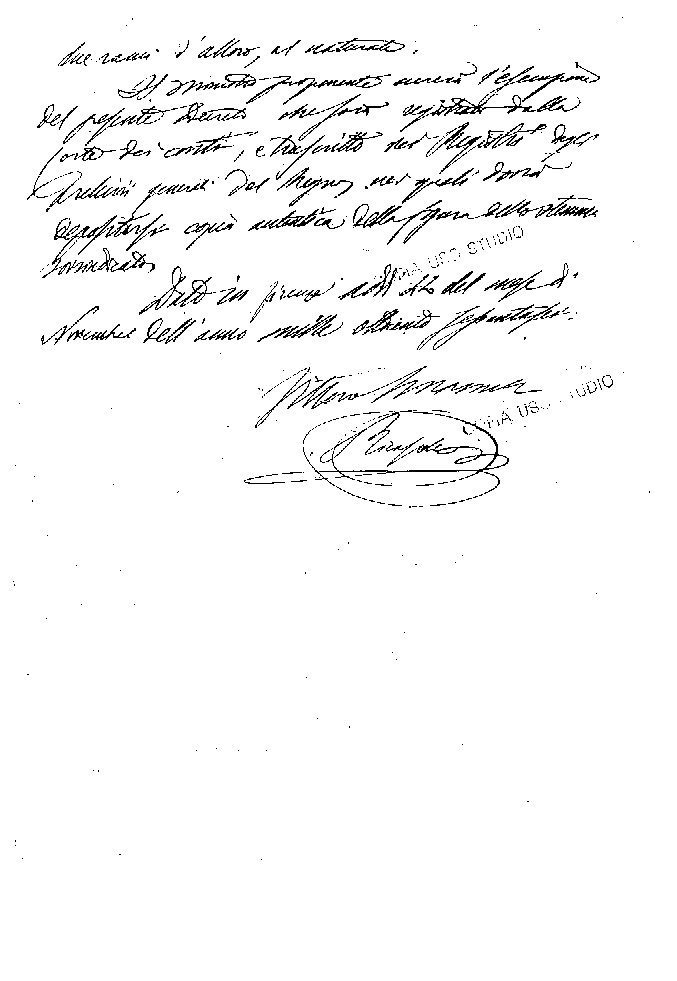 due rami d'alloro, al naturale.
Il Ministro proponente curerà l'esecuzione
del presente Decreto che sarà registrato dalla
Corte dei Conti, e trascritto nei Registri degli
Archivi generali del Regno, nei quali dovrà
depositarsi copia autentica della figura dello stemma
Dato in Firenze addì del mese di
Novembre dell'anno mille ottocento
COPIA USO STUDIO
Vittorio Emanuele
COPIA USO STUDIO